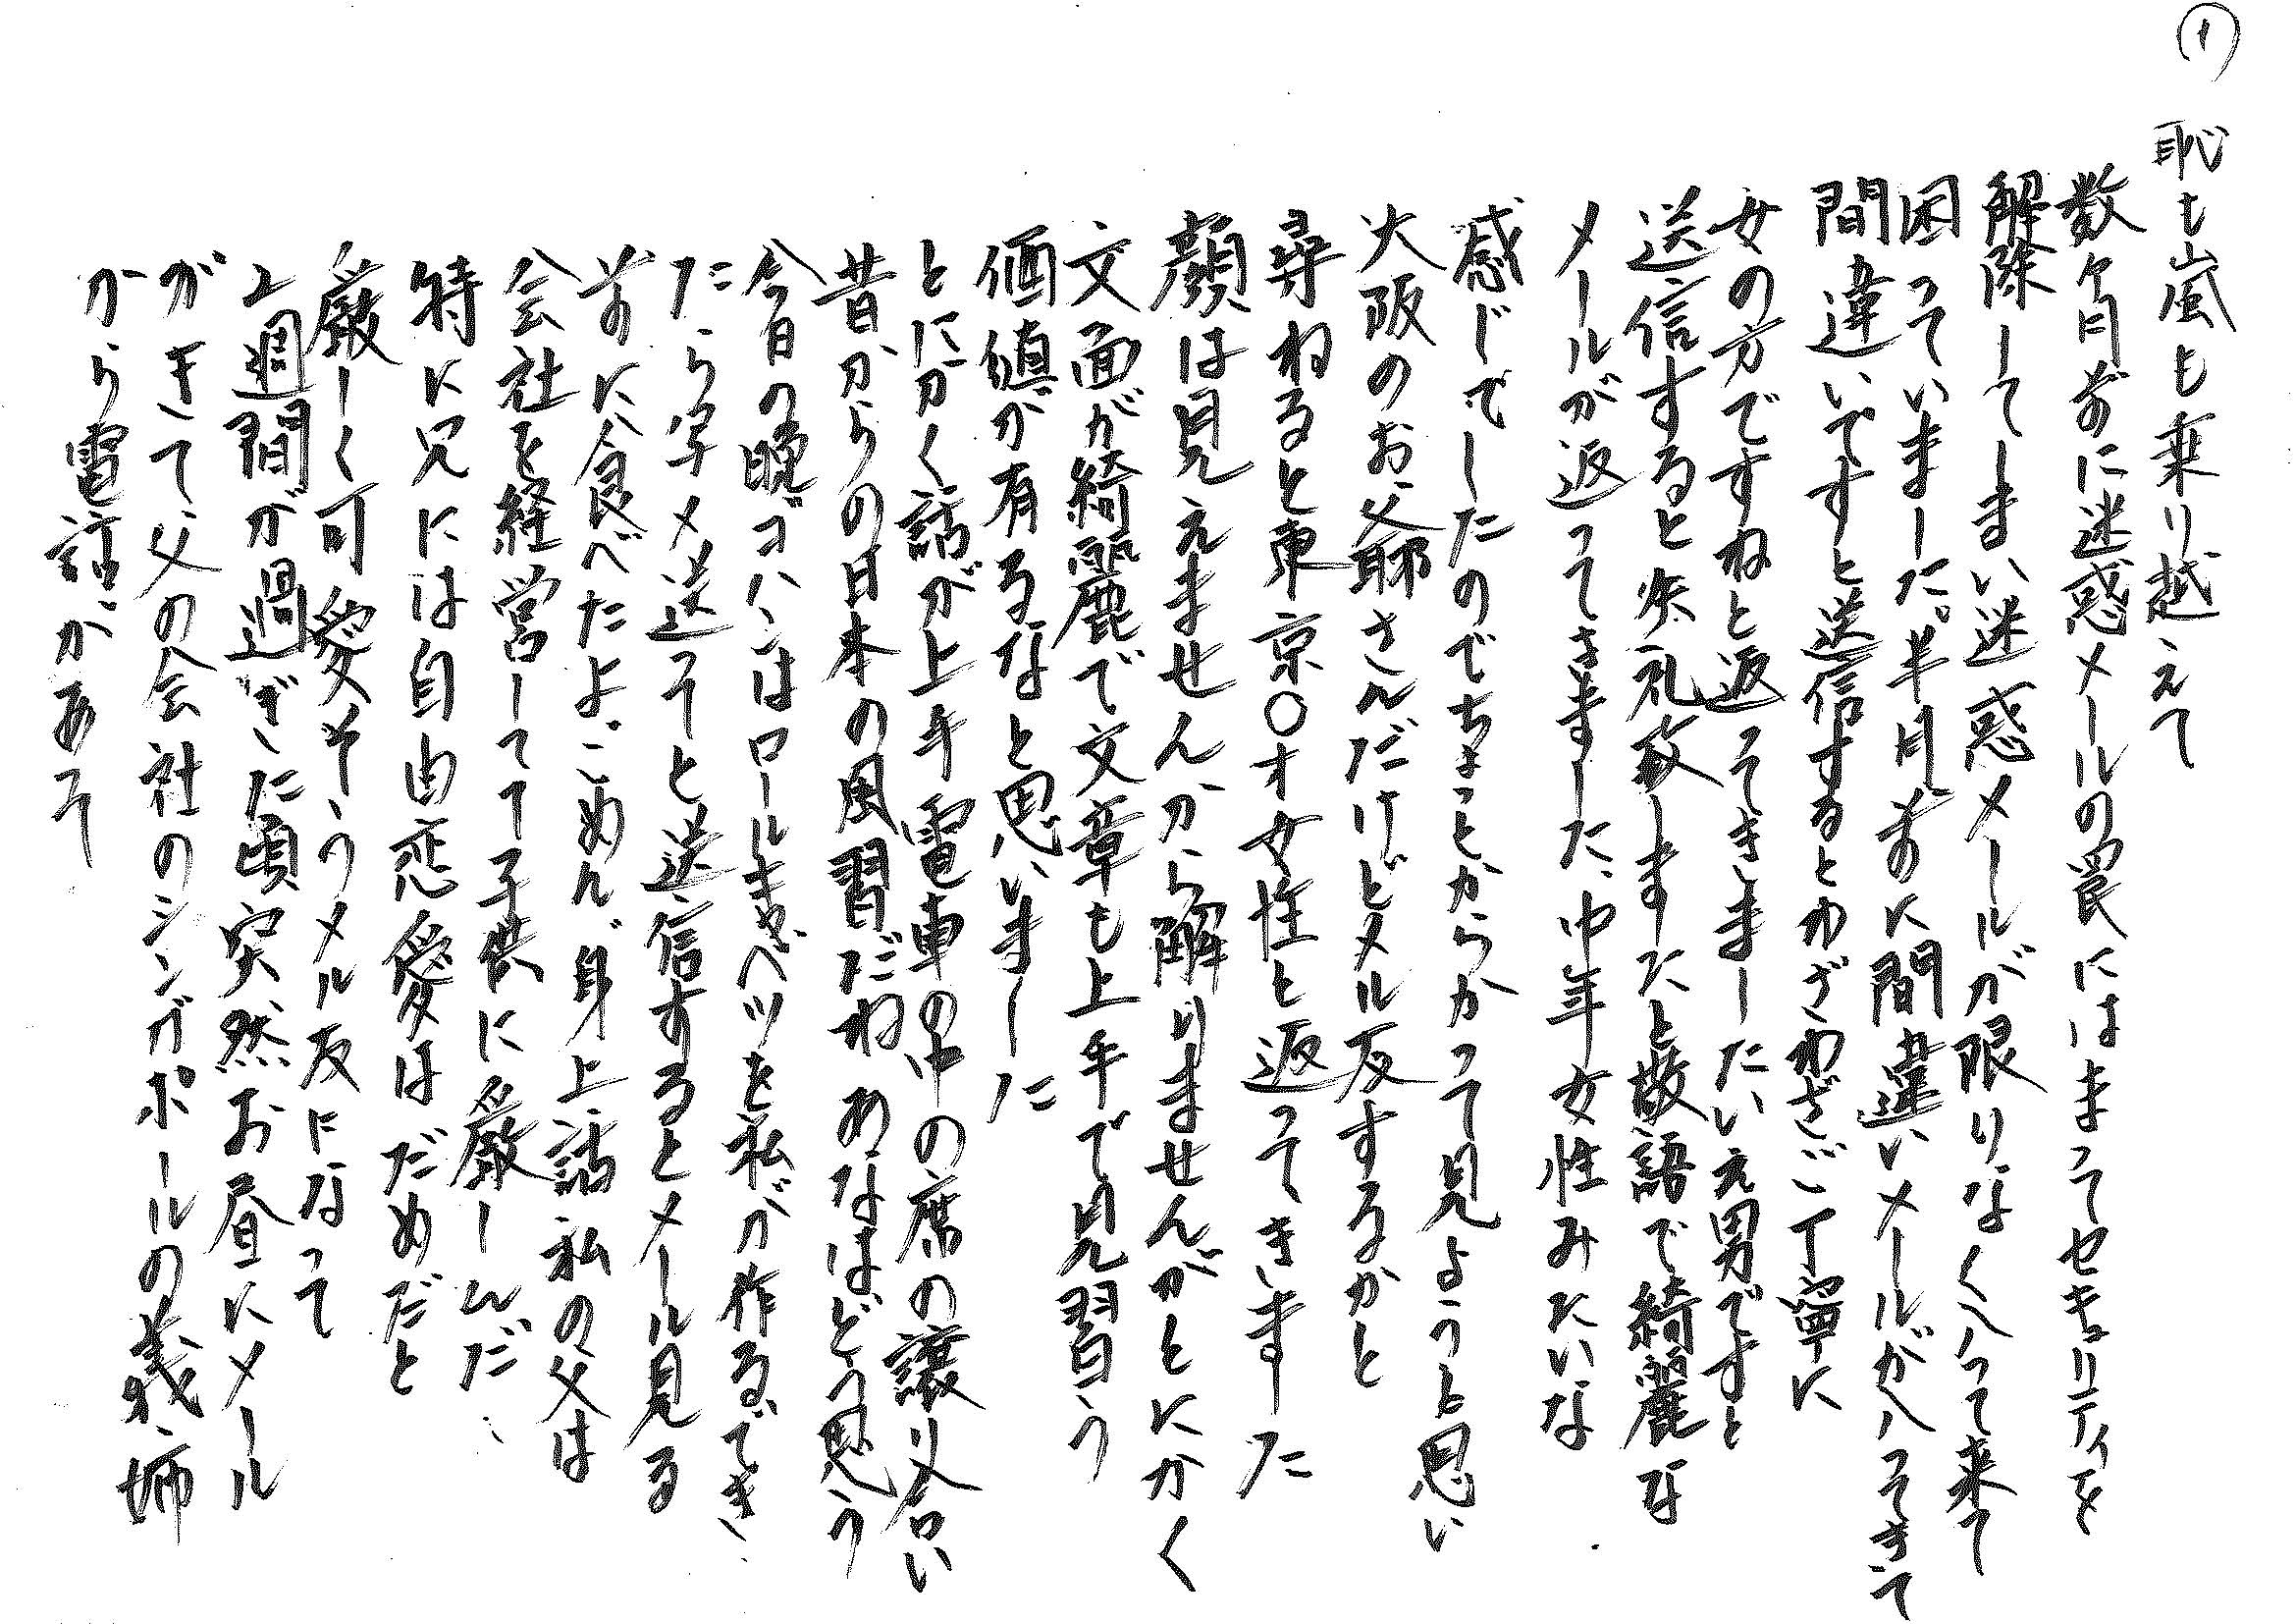 ①
恥も嵐も乗り越えて
数ヶ月前に迷惑メールの罠にはまってセキュリティを
解除してしまい迷惑メールが限りなく入って来て
困っていました。半月前に間違いメールが入ってきて
間違いですと送信するとわざわざご丁寧に
女の方ですねと返ってきましたいえ男ですと
送信すると失礼致しましたと敬語で綺麗な
メールが返ってきました、中年女性みたいな
感じでしたのでちょっとからかって見ようと思い
大阪のお爺さんだけどメル友するかと
尋ねると東京〇才女性と返ってきました
顔は見えませんから解りませんがとにかく
文面が綺麗で文章も上手で見習う
価値が有るなと思いました
とにかく話が上手電車の中の席の譲り合い
昔からの日本の風習だねあなたはどう思う
今日の晩ゴハンはロールキャベツを私が作るでき
たら写メ送ってと送信するとメール見る
前に食べたよごめん、身上話私の父は
会社を経営してて子供に厳しんだ、
特に兄には自由恋愛はだめだと
厳しく可愛そうメル友になって
2週間が過ぎに頃突然お昼にメール
がきて父の会社のシンガポールの義姉
から電話があって